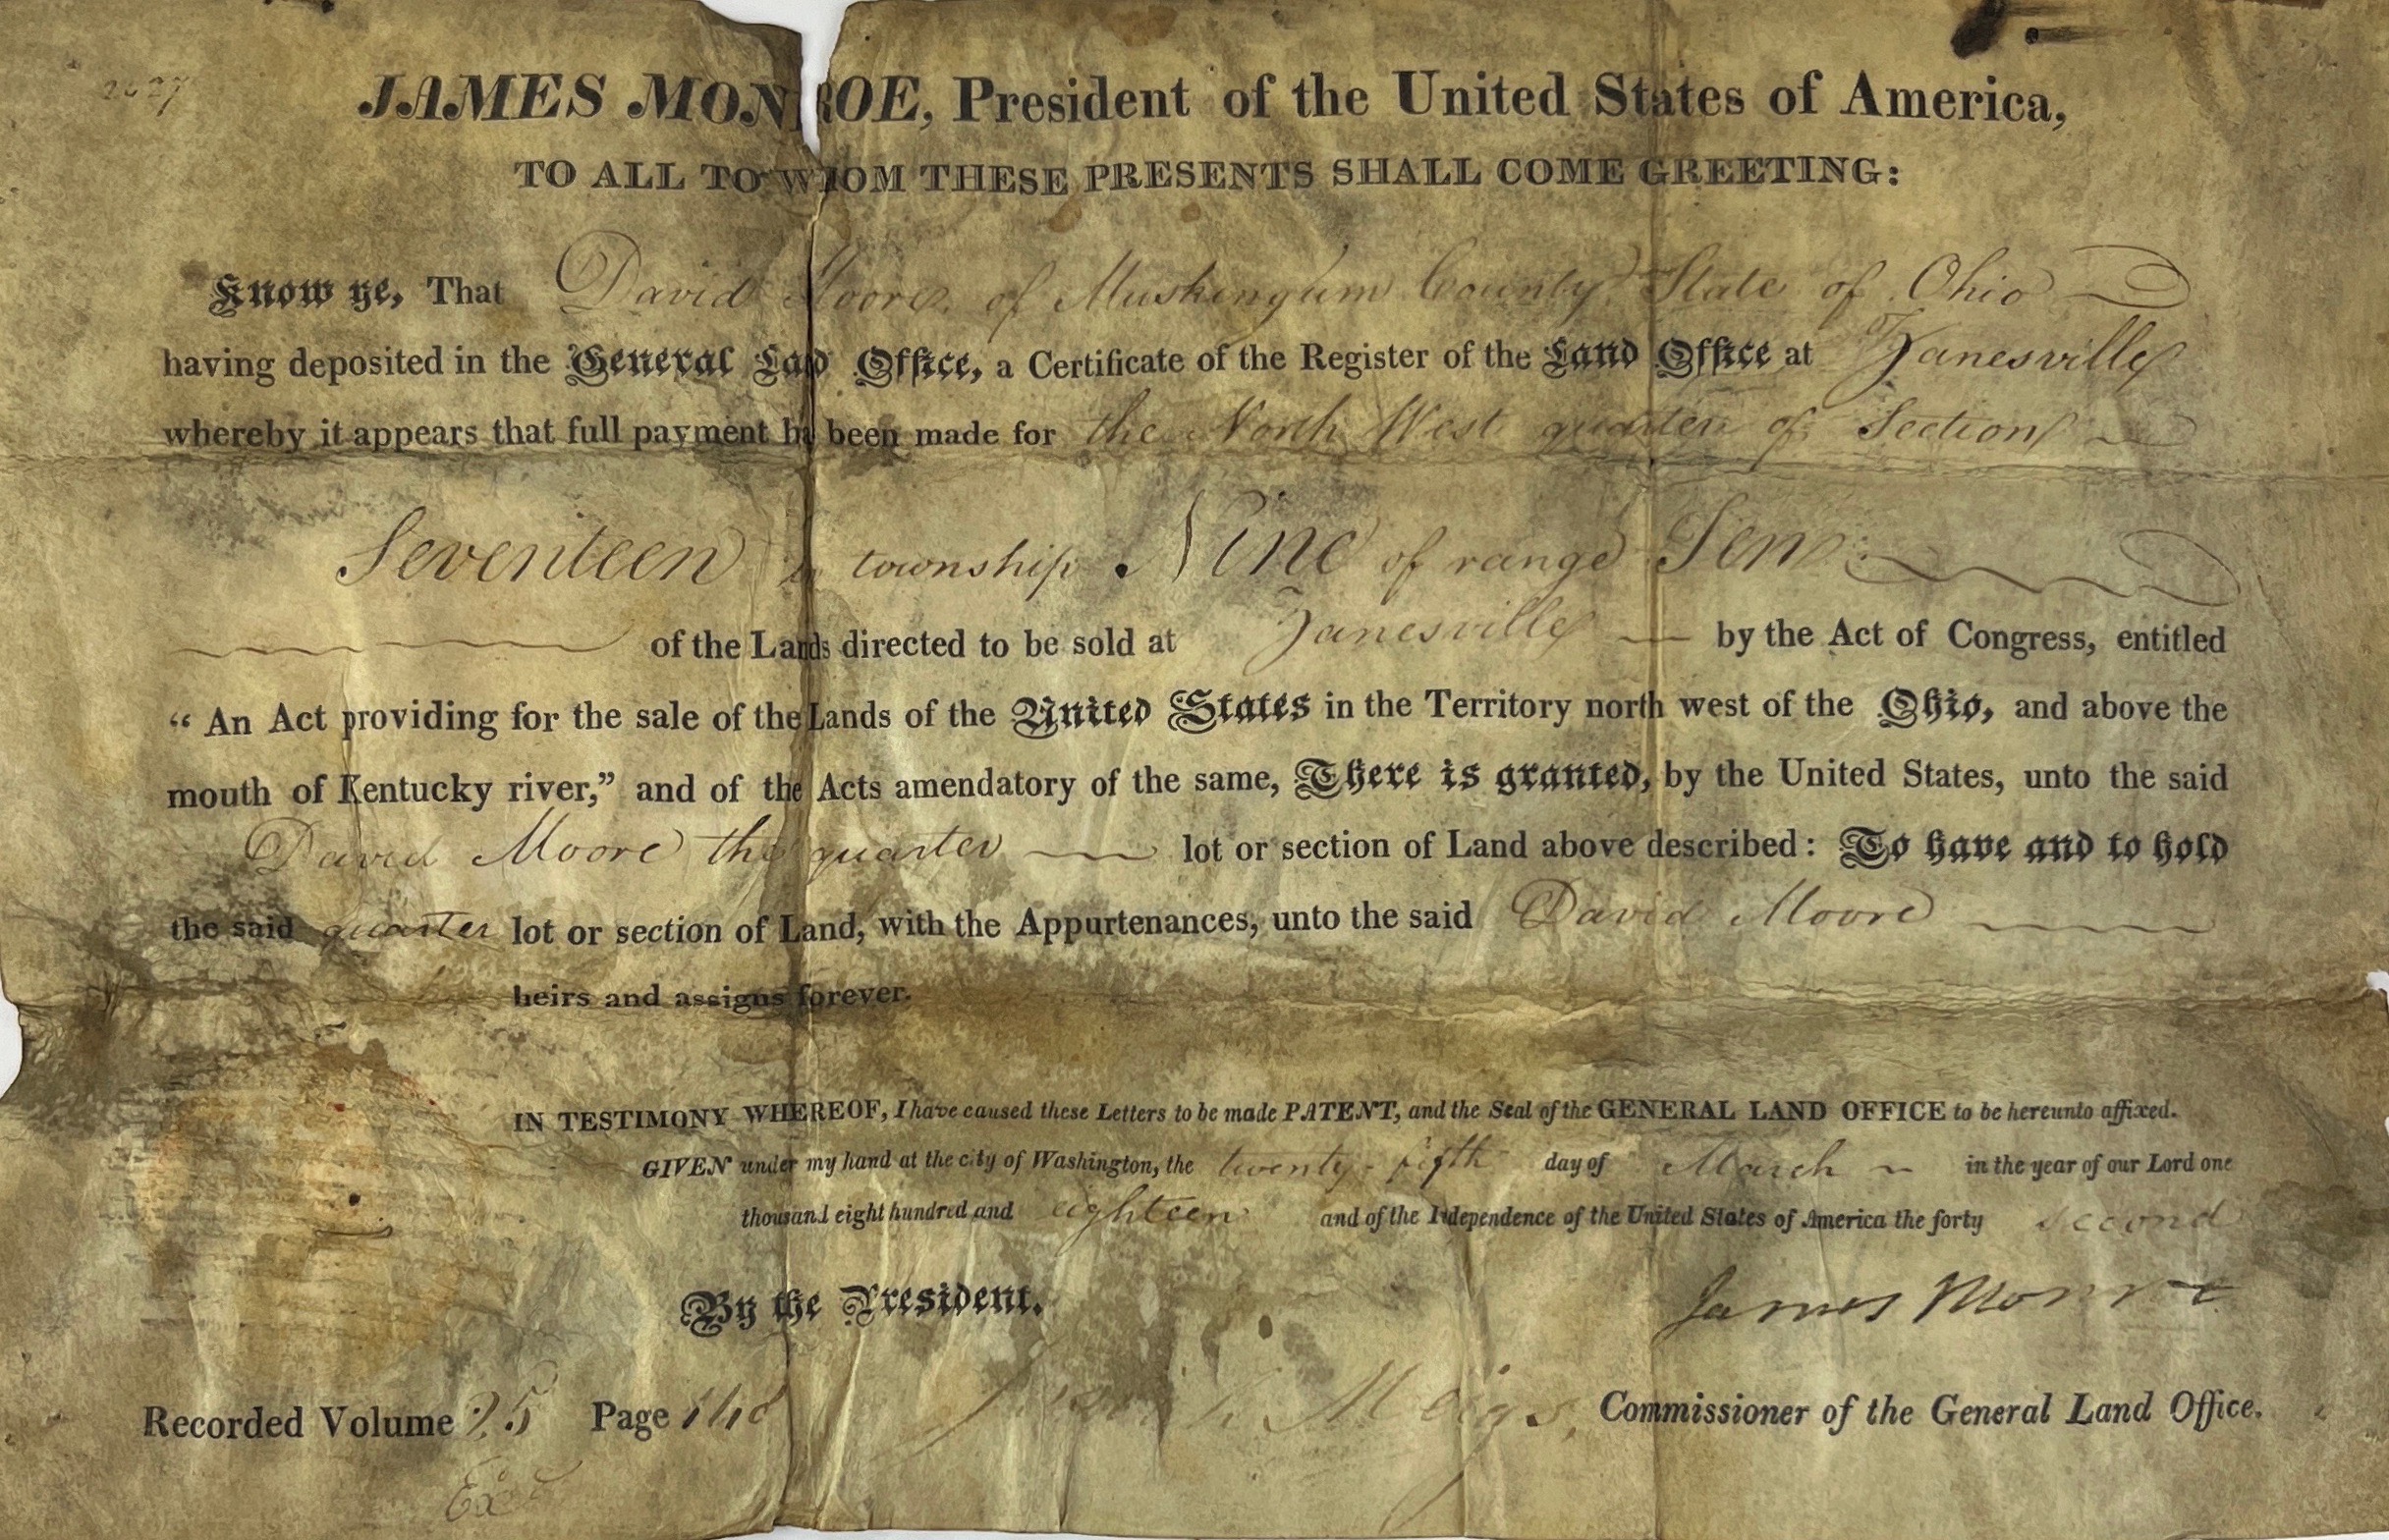 2627
JAMES MONROE, President of the United States of America,
TO ALL TO WHOM THESE PRESENTS SHALL COME GREETING:
Know ye, That David Moore of Muskingum County State of Ohio
having deposited in the General Land Office, a Certificate of the Register of the Land Office at Zanesville
whereby it appears that full payment ha been made for the North West quarter of Section
Seventeen in township Nine of range Ten
of the Lands directed to be sold at Zanesville by the Act of Congress, entitled
“ An Act providing for the sale of the Lands of the United States in the Territory north west of the Ohio, and above the
mouth of Kentucky river,” and of the Acts amendatory of the same, There is granted, by the United States, unto the said
David Moore the quarter lot or section of Land above described: To have and to hold
the said quarter lot or section of Land, with the Appurtenances, unto the said David Moore
heirs and assigns forever.
IN TESTIMONY WHEREOF, I have caused these Letters to be made PATENT, and the Seal of the GENERAL LAND OFFICE to be hereunto affixed.
GIVEN under my hand at the city of Washington, the twenty-fifth day of March in the year of our Lord one
thousand eight hundred and eighteen and of the Independence of the United States of America the forty second
By the President. James Monroe
Recorded Volume 25 Page Josiah Meigs, Commissioner of the General Land Office.
Exd